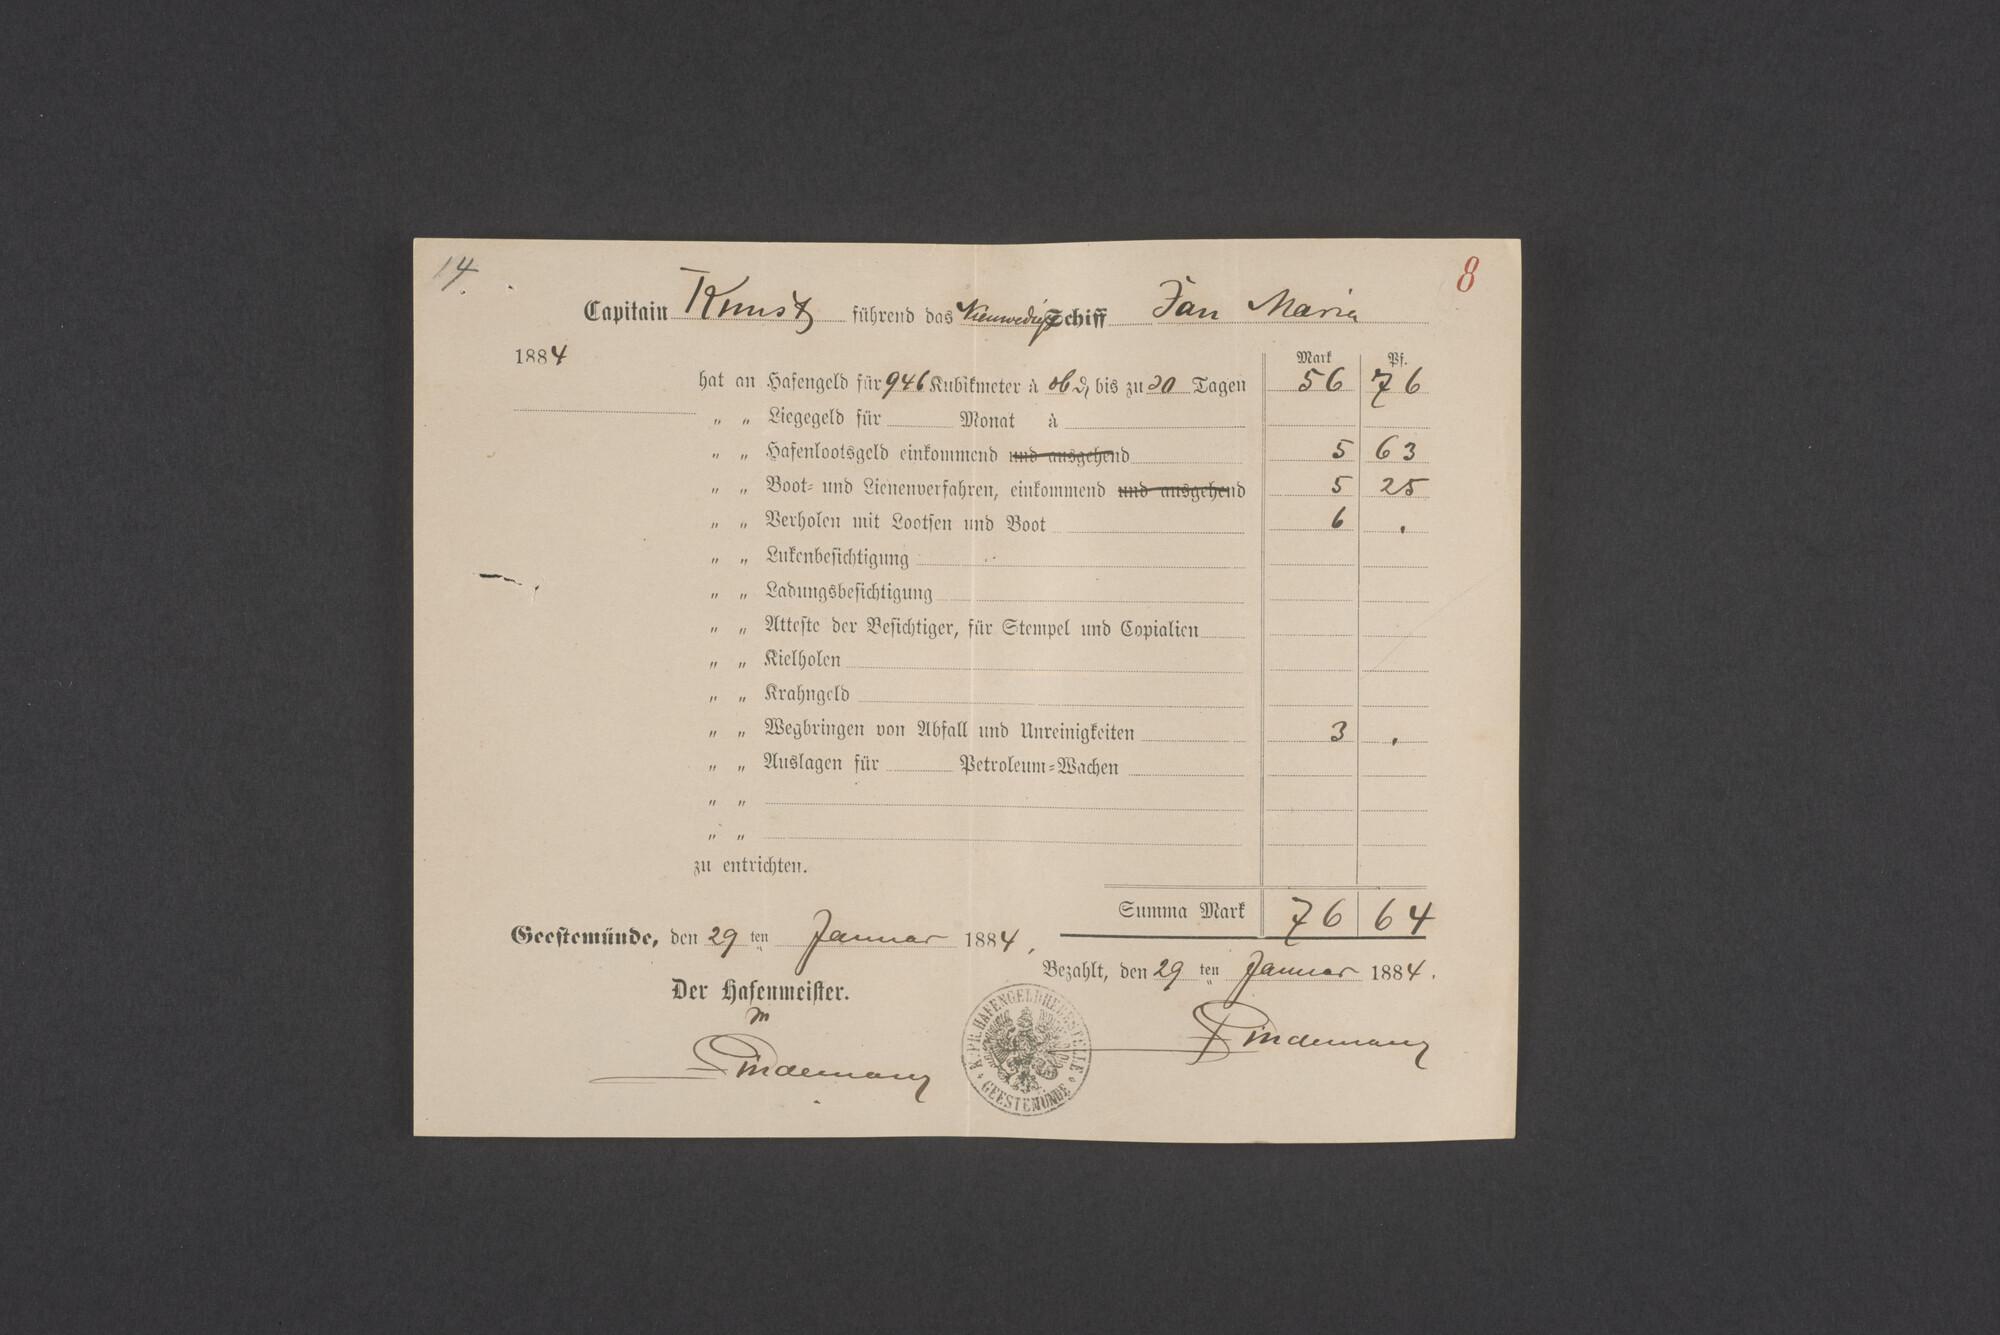 14.
8
Capitain Kunst führend das Schiff Jan Maria
1884
Mark Pf.
hat an Hafengeld für 946 Kubikmeter à 06 ₰ bis zu 20 Tagen 56 76
„ „ Liegegeld für Monat à
„ „ Hafenlootsgeld einkommend und ausgehend 5 63
„ „ Boot- und Lienenverfahren, einkommend und ausgehend 5 25
„ „ Verholen mit Lootsen und Boot 6 .
„ „ Lukenbesichtigung
„ „ Ladungsbesichtigung
„ „ Atteste der Besichtiger, für Stempel und Copialien
„ „ Kielholen
„ „ Krahngeld
„ „ Wegbringen von Abfall und Unreinigkeiten 3 .
„ „ Auslagen für Petroleum-Wachen
„ „
„ „
zu entrichten.
Summa Mark 76 64
Geestemünde, den 29 ten Januar 1884.
Bezahlt, den 29 ten Januar 1884.
Der Hafenmeister.
Lindemann
Lindemann
K. PR. HAFENGELDHEBESTELLE
GEESTEMÜNDE